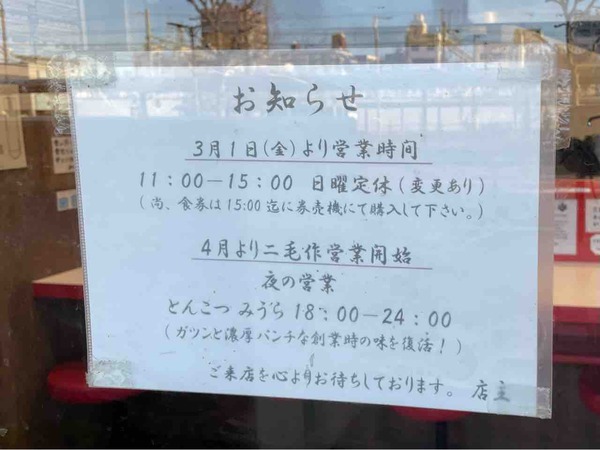 お知らせ
3月1日(金)より営業時间
11：00－15：00 日曜定休(変更あり)
(尚、食券は15:00迄に券売機にて購入して下さい。)
4月より二毛作営業開始
夜の営業
とんこつ みうら 18：00－24：00
(ガツンと濃厚パンチな創業時の味を復活！)
ご来店を心よりお待ちしております。 店主